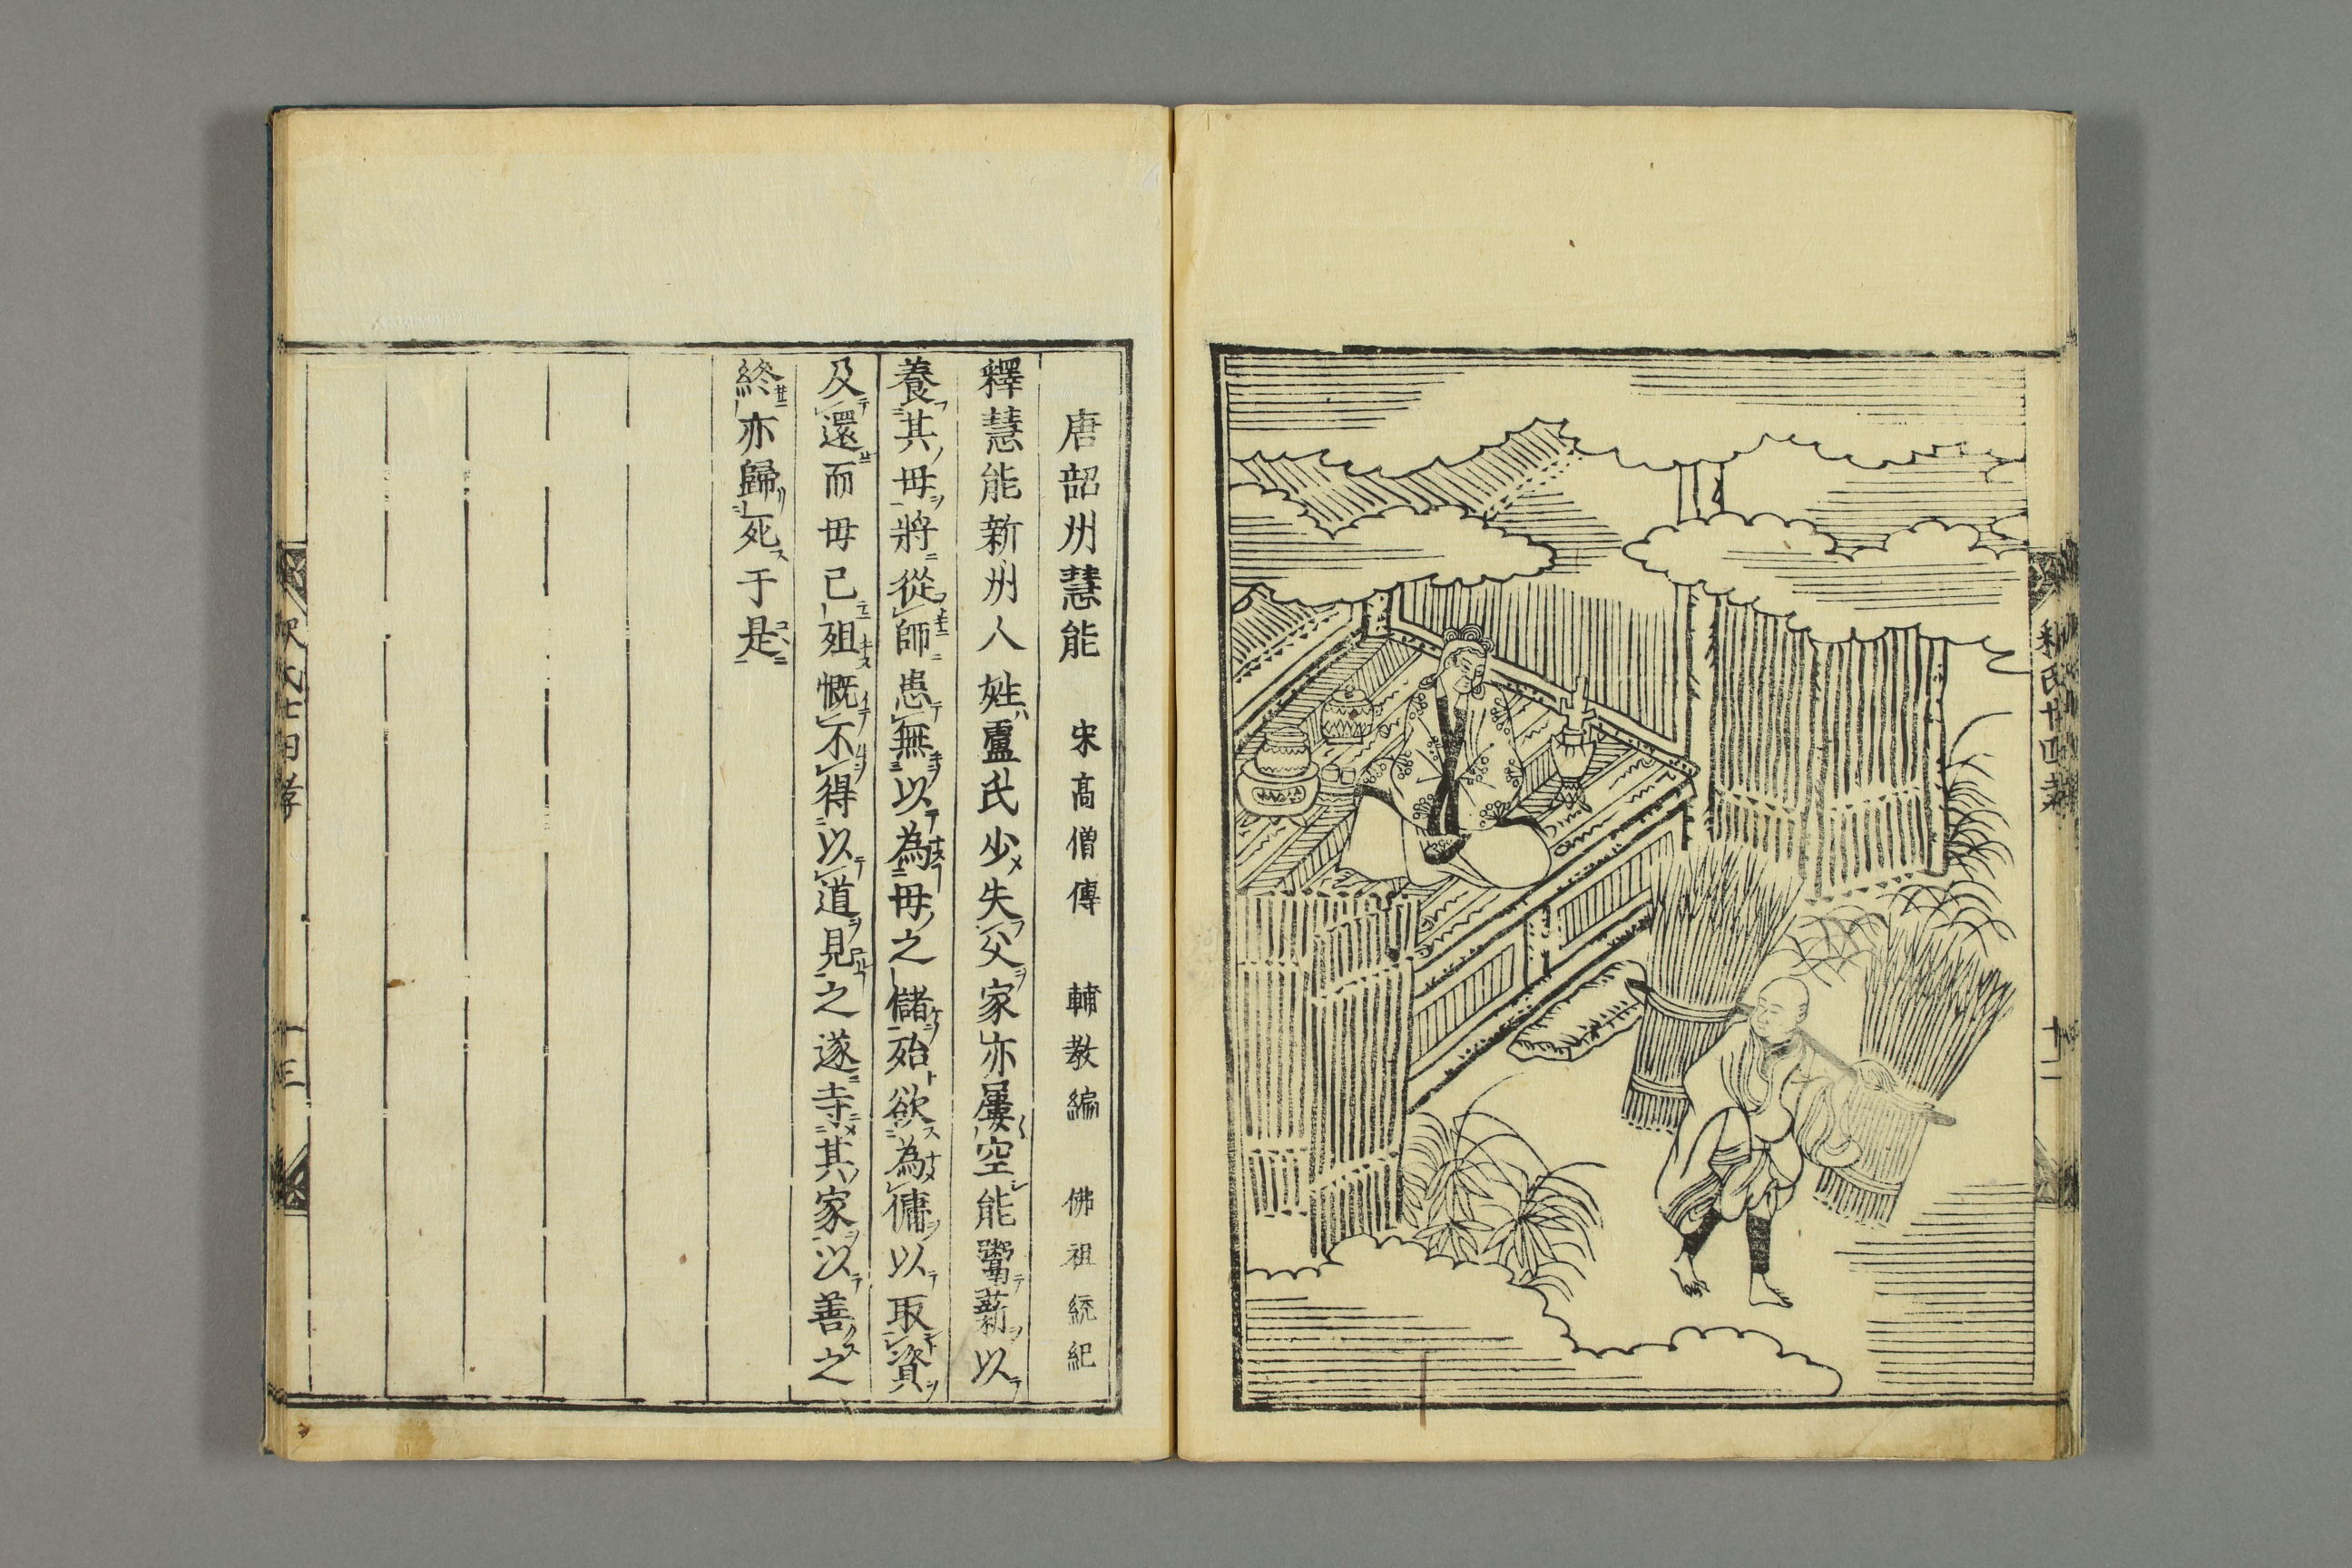 釋氏廿四孝
十二
唐韶州慧能　宋高僧傳　輔教編　佛祖統紀
釋慧能新州人姓盧氏少失父家亦屢空能鬻薪以
養其母將從師患無以為母之儲殆欲為傭以取資
及還而母已殂慨不得以道見之遂寺其家以善之
終亦歸死于是
釈氏廿四孝
十三